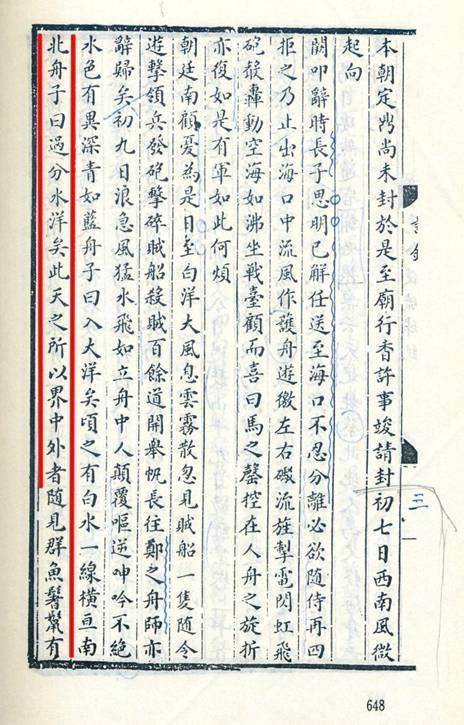 本朝定鼎尚未封於是至廟行香許事竣請封初七日西南風微
起向
闕叩辭時長子思明已解任送至海口不忍分離必欲随侍再四
拒之乃止出海口中流風作護舟遊徼左右礟流旌掣電閃虹飛
砲發轟動空海如沸坐戰臺顧而喜曰馬之罄控在人舟之旋折
亦復如是有軍如此何煩
朝廷南顧憂為是日至白洋大風息雲霧散忽見賊船一隻随令
遊擊領兵發砲擊碎賊船殺賊百餘道開舉帆長往鄭之舟師亦
辭歸矣初九日浪急風猛水飛如立舟中人顛覆嘔逆呻吟不絶
水色有異深青如藍舟子曰入大洋矣頃之有白水一線橫亘南
北舟子曰過分水洋矣此天之所以界中外者随見群魚鬐鬣有
三
648